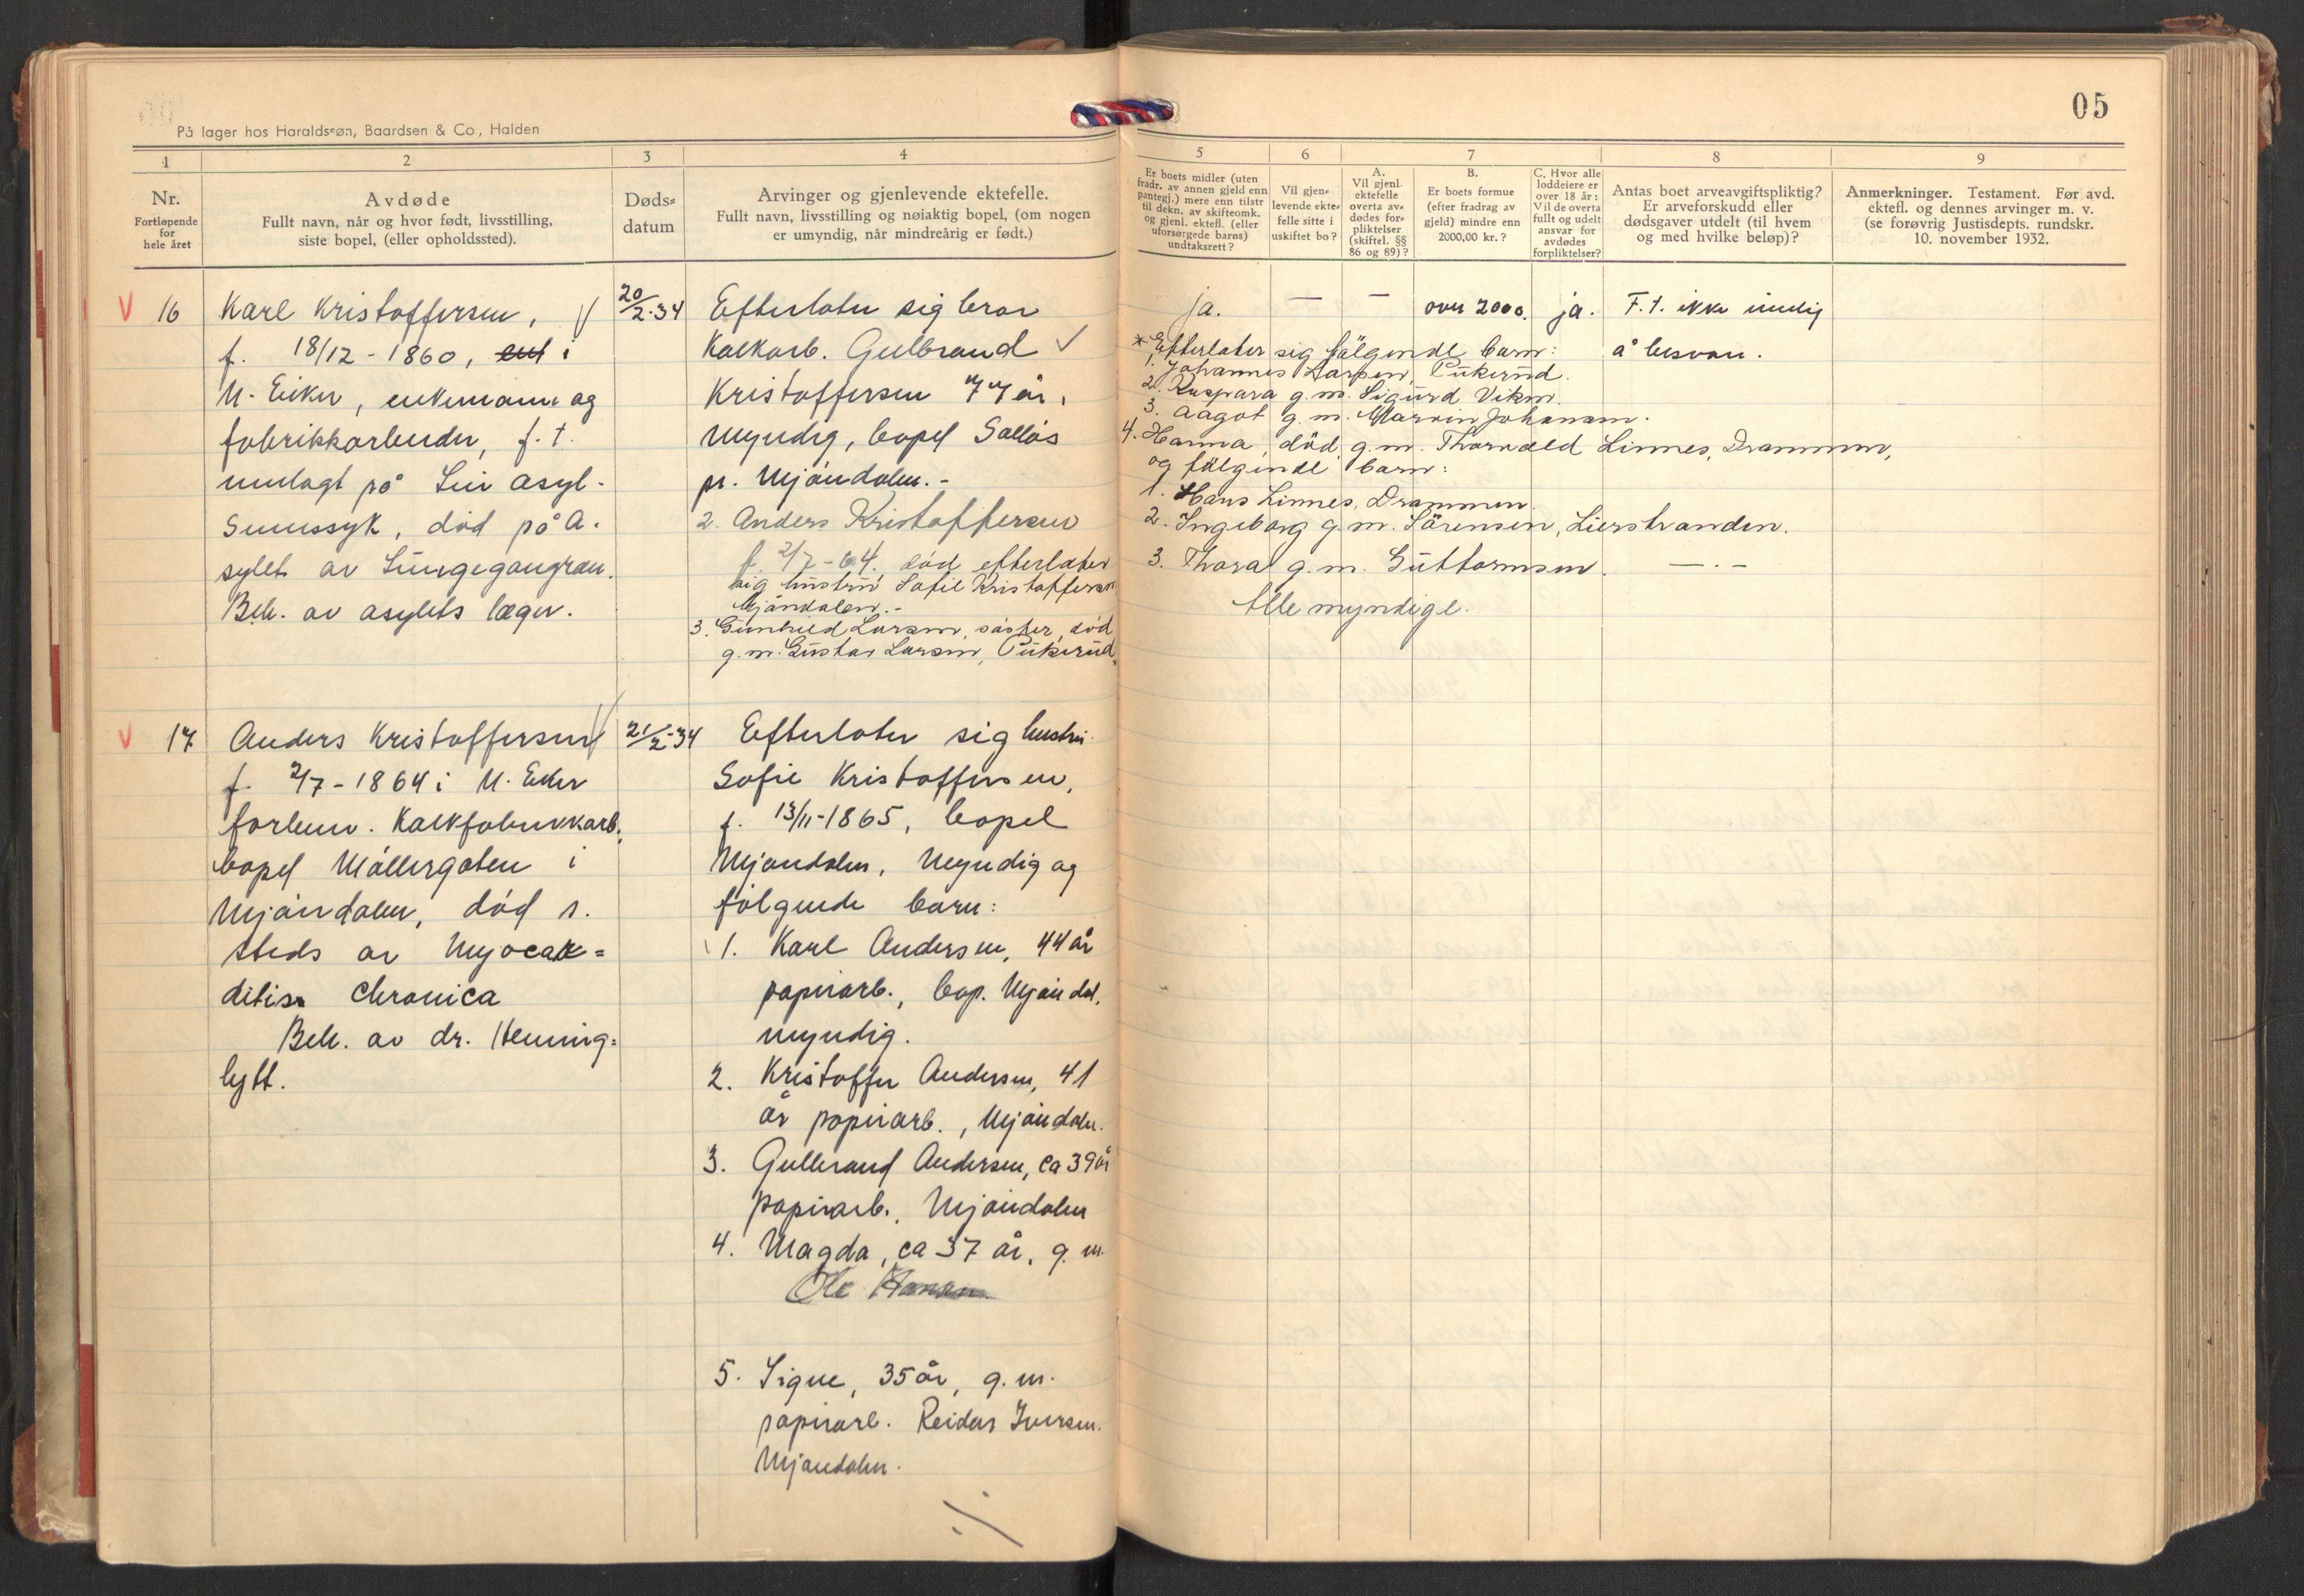 05
På lager hos Haraldssøn, Baardsen & Co, Halden
1
Nr.
Fortløpende
for
hele året
2
Avdøde
Fullt navn, når og hvor født, livsstilling,
siste bopel, (eller opholdssted).
3
Døds-
datum
4
Arvinger og gjenlevende ektefelle.
Fullt navn, livsstilling og nøiaktig bopel, (om nogen
er umyndig, når mindreårig er født.)
5
Er boets midler (uten
fradr. av annen gjeld enn
pantegj.) mere enn tilstr
til dekn. av skifteomk.
og gjenl. ektefl. (eller
uforsørgede barns)
undtaksrett?
6
Vil gjen-
levende ekte-
felle sitte i
uskiftet bo?
7
A.
Vil gjenl.
ektefelle
overta av-
dødes for-
pliktelser
(skiftel. §§
86 og 89)?
B.
Er boets formue
(efter fradrag av
gjeld) mindre enn
2000,00 kr.?
C. Hvor alle
loddeiere er
over 18 år:
Vil de overta
fullt og udelt
ansvar for
avdødes
forpliktelser?
8
Antas boet arveavgiftspliktig?
Er arveforskudd eller
dødsgaver utdelt (til hvem
og med hvilke beløp)?
9
Anmerkninger. Testament. Før avd.
ektefl. og dennes arvinger m. v.
(se forøvrig Justisdepts. rundskr.
10. november 1932.
V 16
Karl Kristoffersen, V
f. 18/12 - 1860, i
N. Eiker, enkemann og
fabrikkarbeider, f. t.
innlagt på Lier asyl -
Sinnssyk, død på A.
sylet av Lungegangren.
Beh. av asylets læger.
20/2-34
Efterlater sig bror
Kalkarb. Gulbrand V
Kristoffersen 77 år,
Myndig, bopel Solløs
pr. Mjøndalen. -
2. Anders Kristoffersen
f. 2/7-64. død efterlater
sig hustru Sofie Kristoffersen
Mjøndalen. -
3. Gunhild Larsen, søster, død
g. m. Gustav Larsen, Pukerud.
ja.
—
—
over 2000.
ja.
F. t. ikke mulig
å besvare.
* Efterlater sig følgende barn:
1. Johannes Larsen, Pukerud.
2. Kaspara g. m. Sigurd Viken.
3. Aagot g. m. Marvin Johansen.
4. Hanna, død, g. m. Thorvald Linnes, Drammen,
og følgende barn:
1. Hans Linnes, Drammen.
2. Ingeborg g. m. Sørensen, Lierstranden.
3. Thora g. m. Guttormsen. — . —
Alle myndige.
V 17
Anders Kristoffersen V
f. 2/7 - 1864 i N. Eiker
forhenv. Kalkfabrikkarb.
bopel Møllergaten i
Mjøndalen, død s.
steds av Myocar=
ditis Chronica
Beh. av dr. Henning=
lytt.
21/2-34
Efterlater sig hustru
Sofie Kristoffersen,
f. 13/11-1865, bopel
Mjøndalen, Myndig og
følgende barn:
1. Karl Andersen, 44 år
papirarb., bop. Mjøndal.
myndig.
2. Kristoffer Andersen, 41
år papirarb., Mjøndalen.
3. Gulbrand Andersen, ca 39 år
papirarb., Mjøndalen
4. Magda, ca 37 år, g. m.
Ole Hansen
5. Signe, 35 år, g. m.
papirarb. Reidar Iversen.
Mjøndalen.